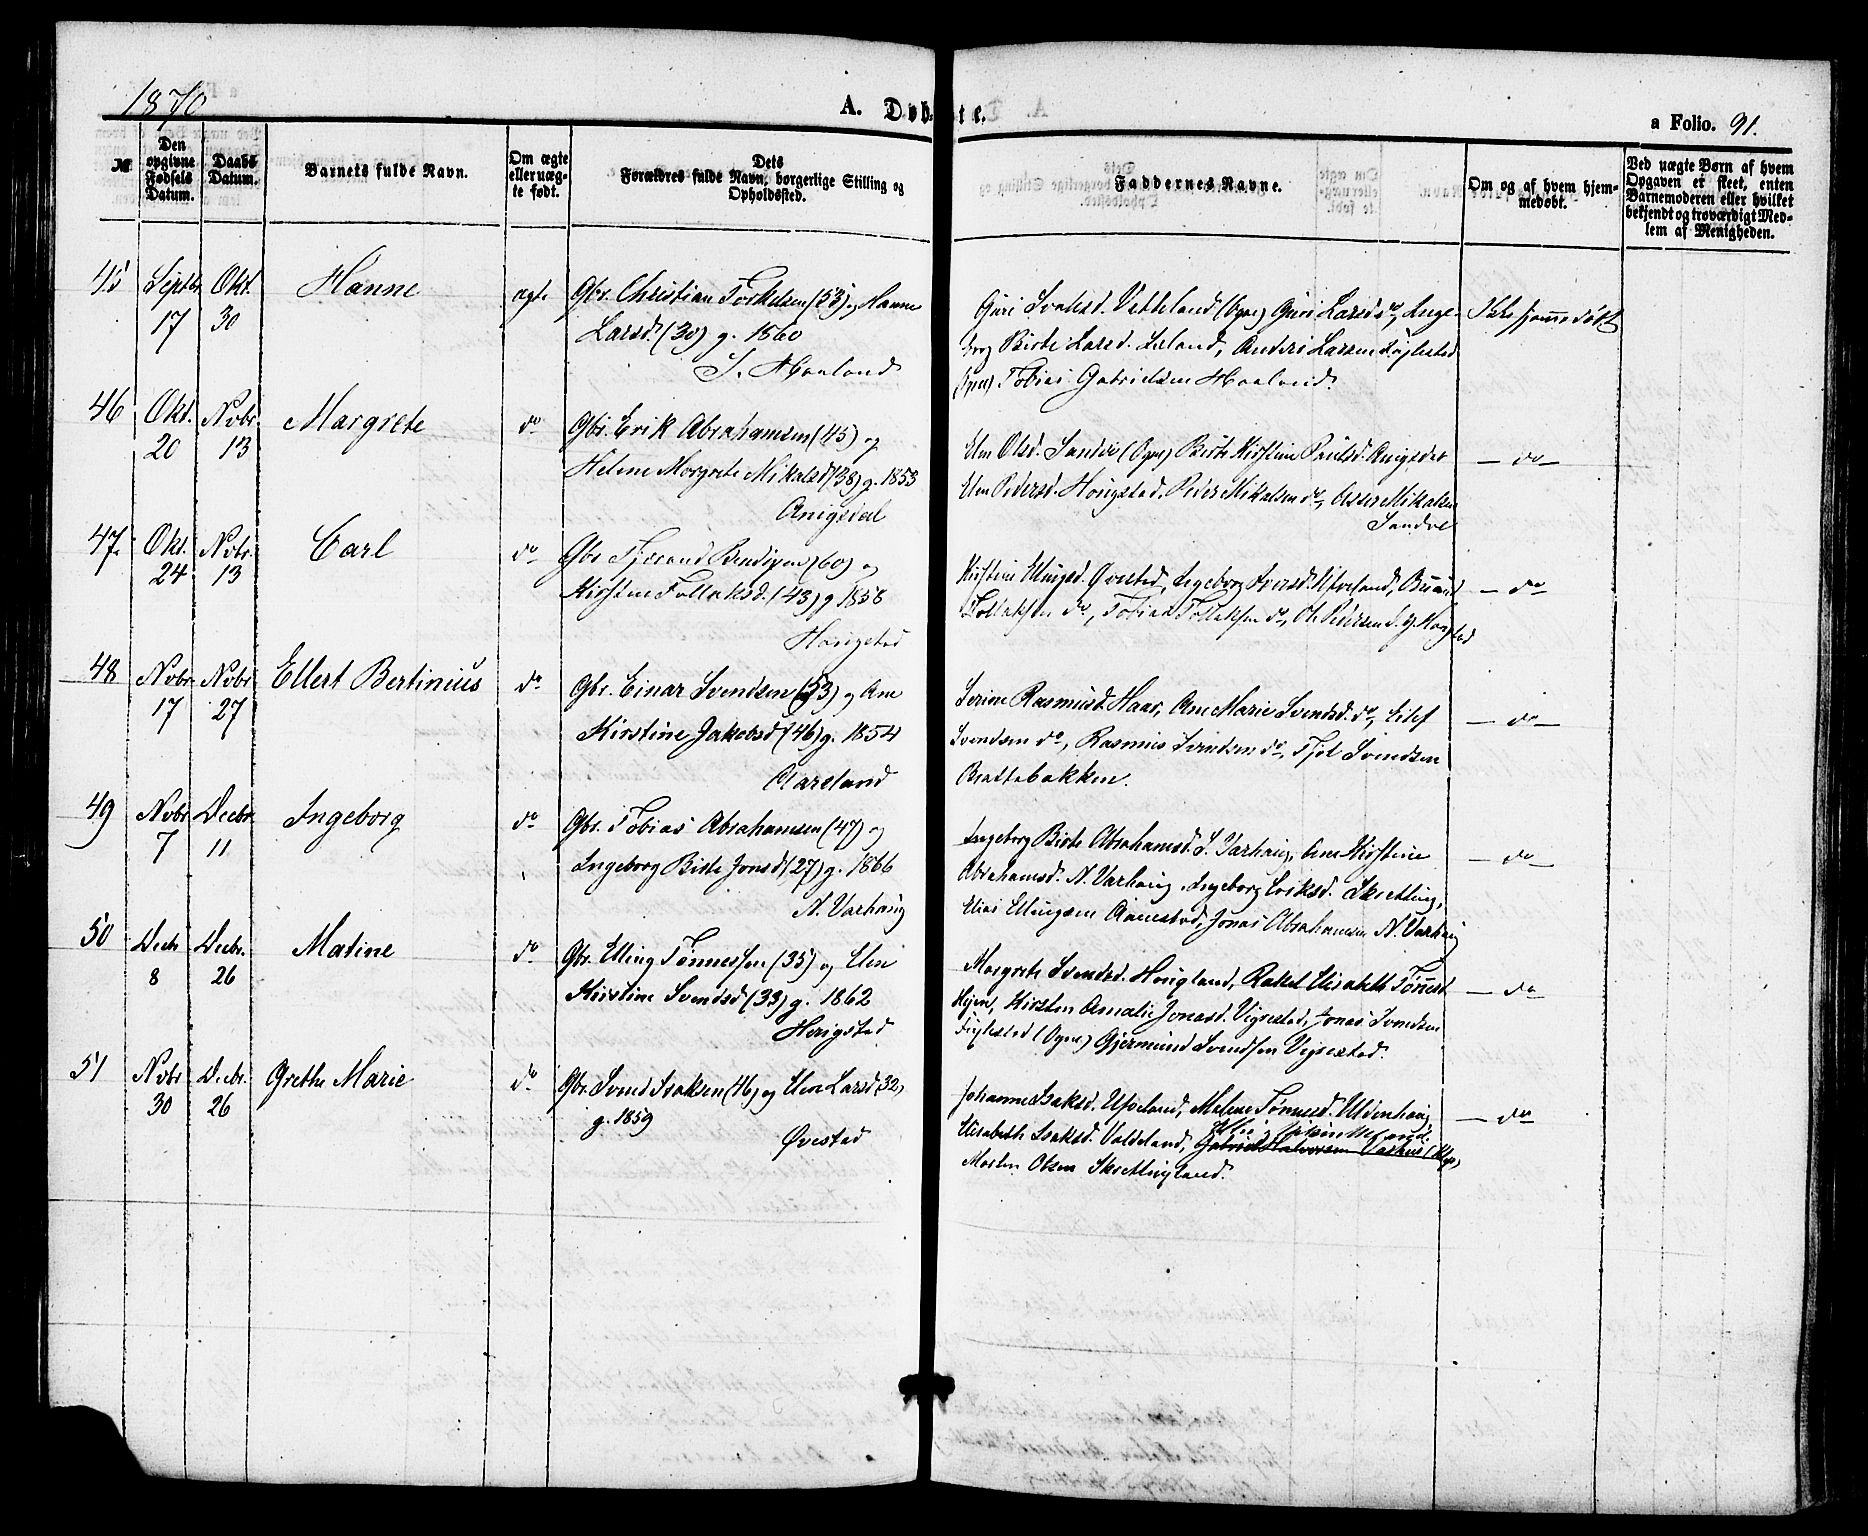 1870
A. Døbte.
a Folio. 91.
№
Den opgivne Fødsels Datum.
Daabs Datum.
Barnets fulde Navn.
Om ægte eller uægte født.
Dets Forældres fulde Navn, borgerlige Stilling og Opholdssted.
Faddernes Navne.
Om og af hvem hjemmedøbt.
Ved uægte Børn af hvem Opgaven er skeet, enten Barnemoderen eller hvilket bekjendt og troværdigt Medlem af Menigheden.
45 Septbr. Okt. Hanne ægte Gbr. Christian Torkelsen (53) og Hanne
17 30 Larsd. (30) g. 1860
S. Haaland
Guri Larsd. do, Inge-
borg Birte Larsd. Anders Larsen
(Ogne) Tobias Gabrielsen Haaland
Ikke hjemmedøbt
46 Okt. Novbr. Margrete do Gbr. Erik Abrahamsen (45) og
20 13 Helene Margrete Mikalsd (38) g. 1853
Anigsdal
Elen Olsd. Sandve (Ogne) Birte Kirstine Paulsd. Anigsdal
Elen Pedersd. Hougstad, Peder Mikalsen do, Asser Mikalsen
Sandve
— do —
47. Okt. Novbr. Carl do Gbr. Tjerand Bendixen (60) og
24 13 Kirsten Tollaksd. (43) g. 1858
Hougstad
Kirstine Ellingsd. Øvestad, Ingeborg
Tollaksen do, Tobias Tollaksen do, Ole Pedersen
— do —
48 Novbr. Novbr. Ellert Bertinius do Gbr. Einar Svendsen (53) og Ane
17 27 Kirstine Jakobsd (46) g. 1854
Aareland
Serine Rasmusd. Haar, Ane Marie Svendsd. do, Eilef
Svendsen do, Rasmus Svendsen do, Tjøl Svendsen
Brattebakken.
— do —
49 Novbr Decbr. Ingeborg do Gbr. Tobias Abrahamsen (47) og
7 11 Ingeborg Birte Jonsd (27) g. 1866
N. Varhaug
Ingeborg Birte Abrahamsd. S. Varhaug, Ane Kirstine
Abrahamsd. N. Varhaug, Ingeborg Eriksd. Skretting,
Elias Ellingsen Aanestad, Jonas Abrahamsen N. Varhaug
— do —
50 Decb Decbr. Matine do Gbr. Elling Tønnessen (35) og Elen
8 26 Kirstine Svendsd (33) g. 1862
Herigstad
Margrete Svendsd. Hougland, Rakel Elisabeth Tønnesd.
Kirsten Amalie Jonasd. Vigrestad, Jonas Svendsen
Fuglestad (Ogne) Gjermund Svendsen Vigrestad.
— do —
51 Novbr Decbr. Grethe Marie do Gbr. Svend Isaksen (46) og Elen Larsd (32)
30 26 g. 1859
Øvestad
Johanne Isaksd. Ueland, Malene Tønnesd. Uldenhaug,
Elisabeth Isaksd. Valdeland, Gabriel Halvorsen Varhus (Klep)
Morten Olsen Skretlingland.
— do —